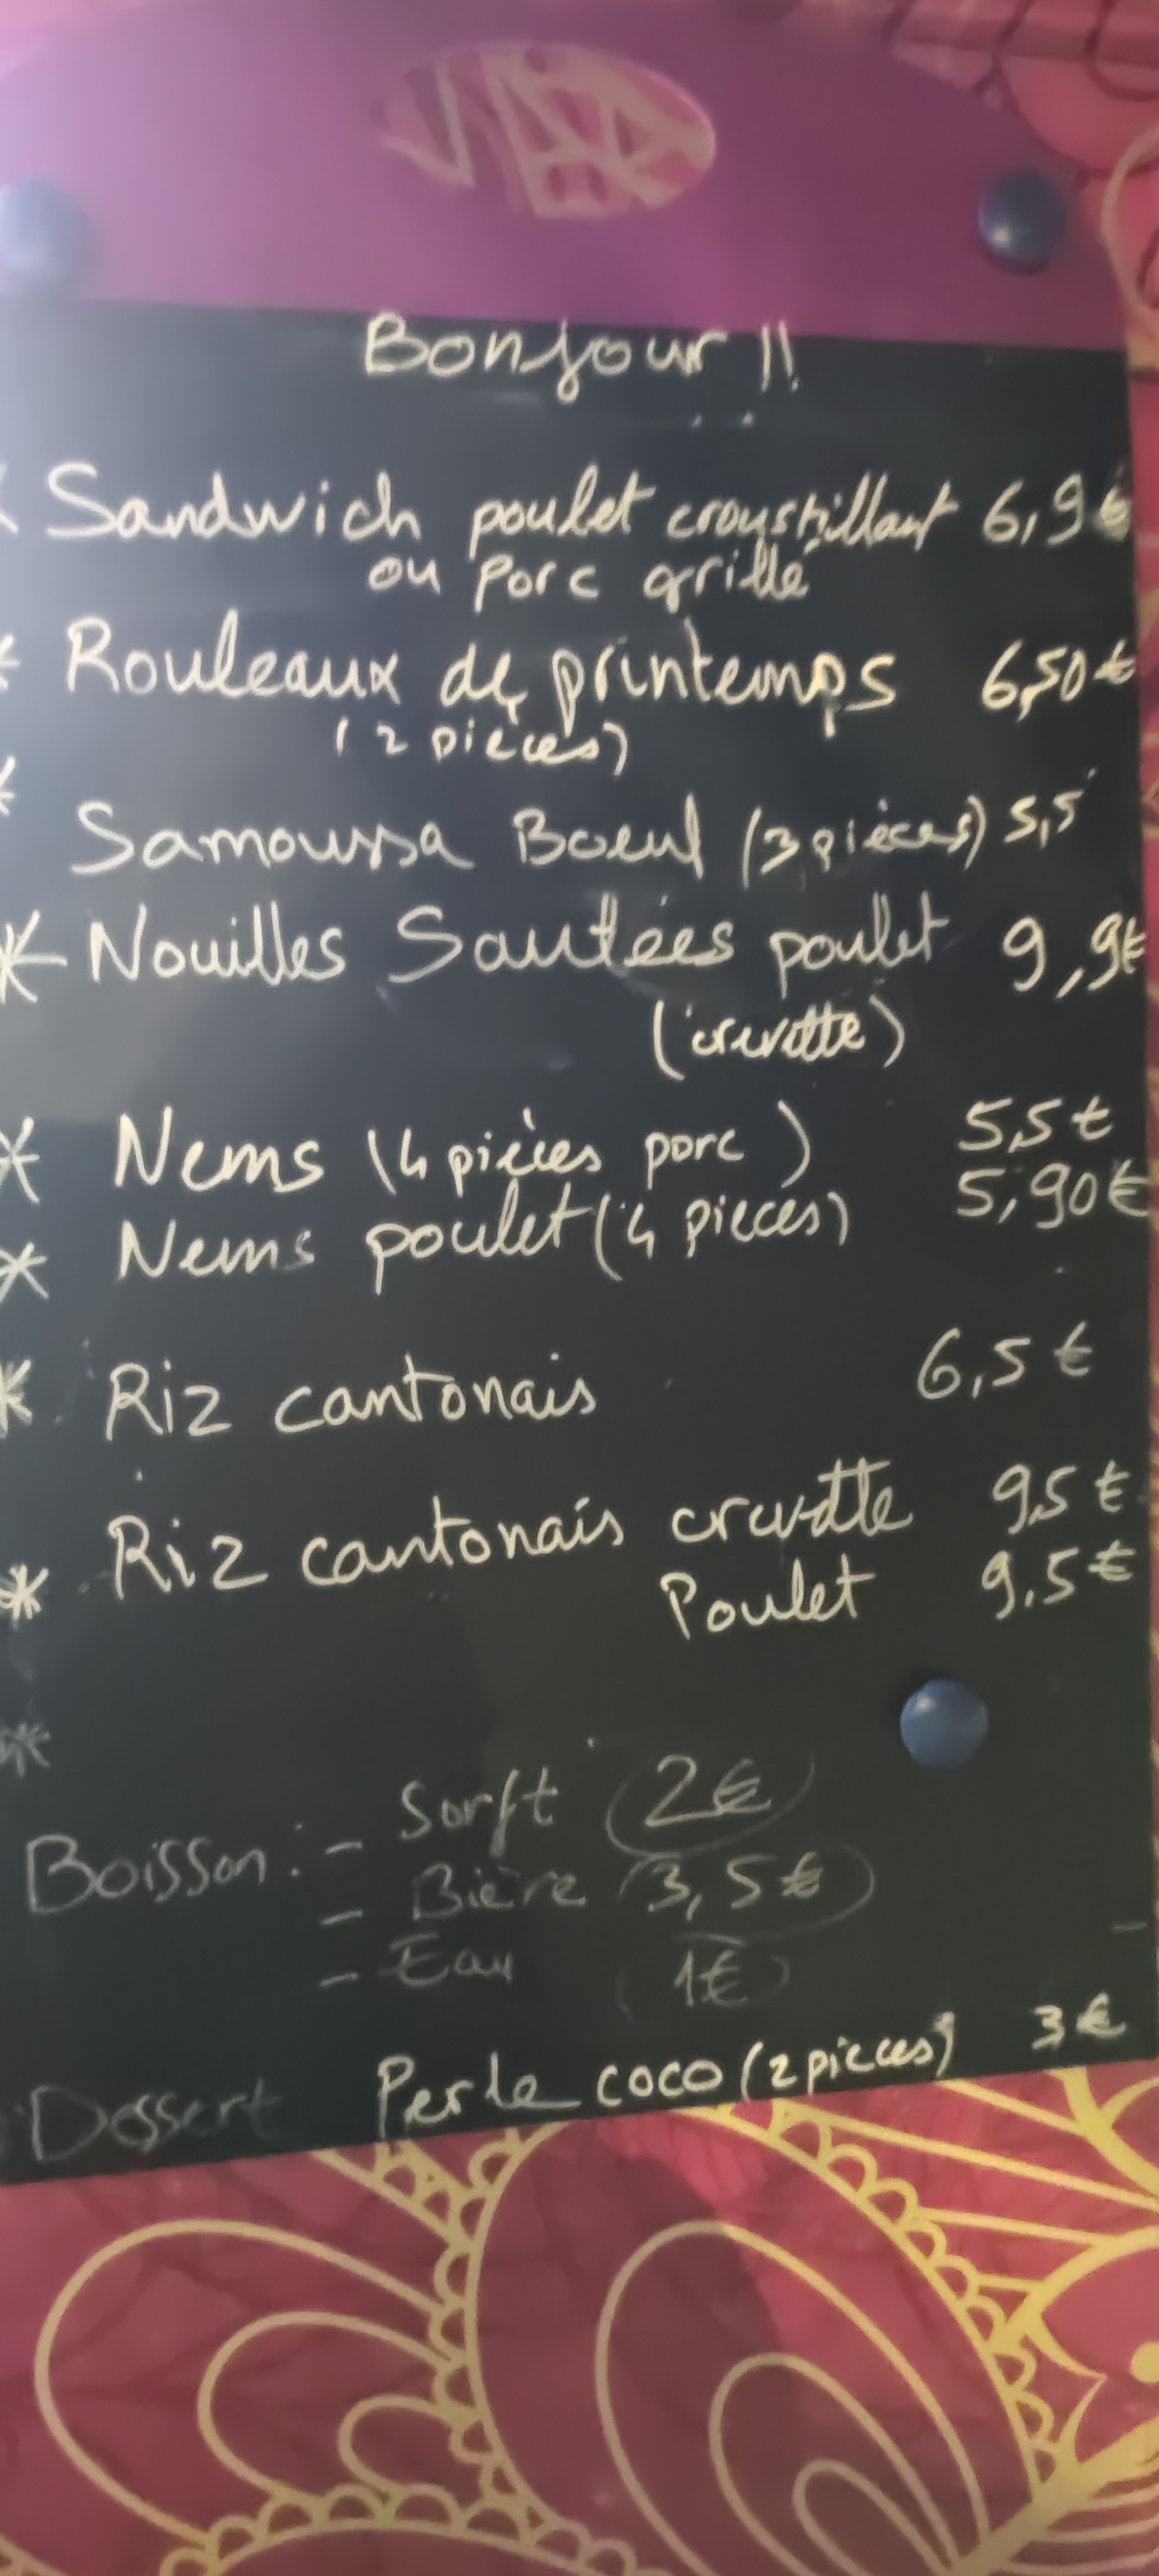 Bonjour !!
* Sandwich poulet croustillant 6,9€
ou porc grillé
* Rouleaux de printemps 6,50€
(2 pièces)
* Samoussa Boeuf (3 pièces) 5,5
* Nouilles Sautées poulet 9,9€
(crevette)
* Nems (4 pièces porc) 5,5€
* Nems poulet (4 pieces) 5,90€
* Riz cantonais 6,5€
* Riz cantonais crevette 9,5€
Poulet 9,5€
*
Boisson : - Sorft 2€
- Bière 3,5€
- Eau (1€)
Dessert Perle coco (2 pieces) 3€